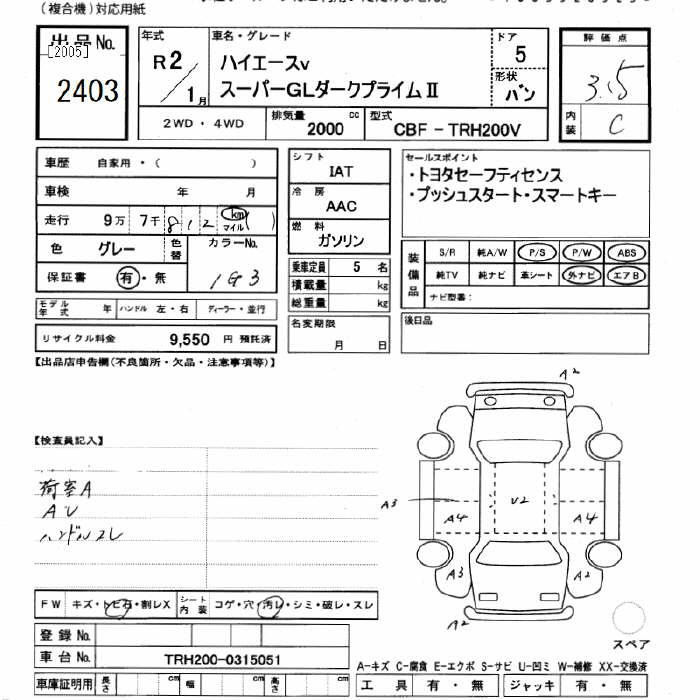 (複合機)対応用紙
出品No.
[2005]
2403
年式
R2/1月
車名・グレード
ハイエースV
スーパーGLダークプライムⅡ
ドア
5
形状
バン
評価点
3.5
内装
C
2WD・4WD
排気量
2000
cc
型式
CBF-TRH200V
車歴 自家用・( )
車検 年 月
走行 9万 7千 8 1 2 km マイル ( )
色 グレー 色替 カラーNo.
保証書 有・無 1G3
モデル年式 年 ハンドル 左・右 ディーラー・並行
リサイクル料金 9,550 円 預託済
シフト
IAT
冷房
AAC
燃料
ガソリン
乗車定員 5 名
積載量 kg
総重量 kg
名変期限
月 日
セールスポイント
・トヨタセーフティセンス
・プッシュスタート・スマートキー
装備品
S/R 純A/W P/S P/W ABS
純TV 純ナビ 革シート 外ナビ エアB
ナビ型番:
後日品
【出品店申告欄(不良箇所・欠品・注意事項等)】
【検査員記入】
荷室A
AU
ハンドルスレ
A2
A3
U2
A4
A4
A3
A2
A2
スペア
FW キズ・トビ石・割レX シート内装 コゲ・穴・汚レ・シミ・破レ・スレ
登録No.
車台No. TRH200-0315051
車庫証明用 長さ cm 幅 cm 高さ cm
A-キズ C-腐食 E-エクボ S-サビ U-凹ミ W-補修 XX-交換済
工具 有・無 ジャッキ 有・無